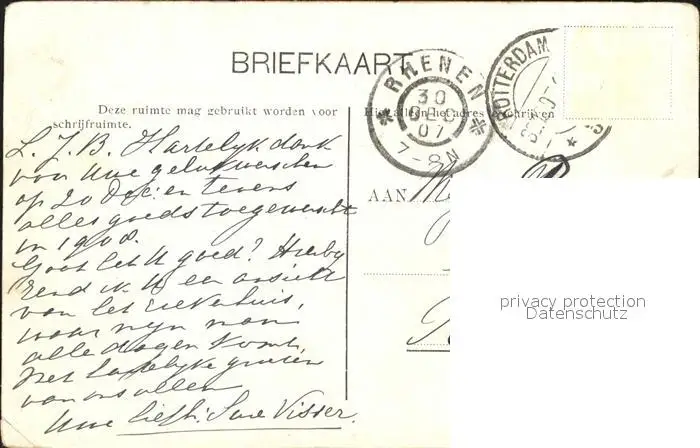 BRIEFKAART
RHENEN
30
DEC
07
7-8N
ROTTERDAM
Deze ruimte mag gebruikt worden voor
schrijfruimte.
Hier alleen het adres schrijven
AAN
L. J. B. Hartelyk dank
voor Uwe gelukwenschen
op 20 Dec: en tevens
alles goeds toegewenscht
in 1908.
Gaat het U goed? Hierby
zend ik U een ansicht
van het ziekenhuis,
waar myn man
alle dagen komt,
Met hartelyke groeten
van ons allen
Uwe liefh: Visser.
privacy protection
Datenschutz